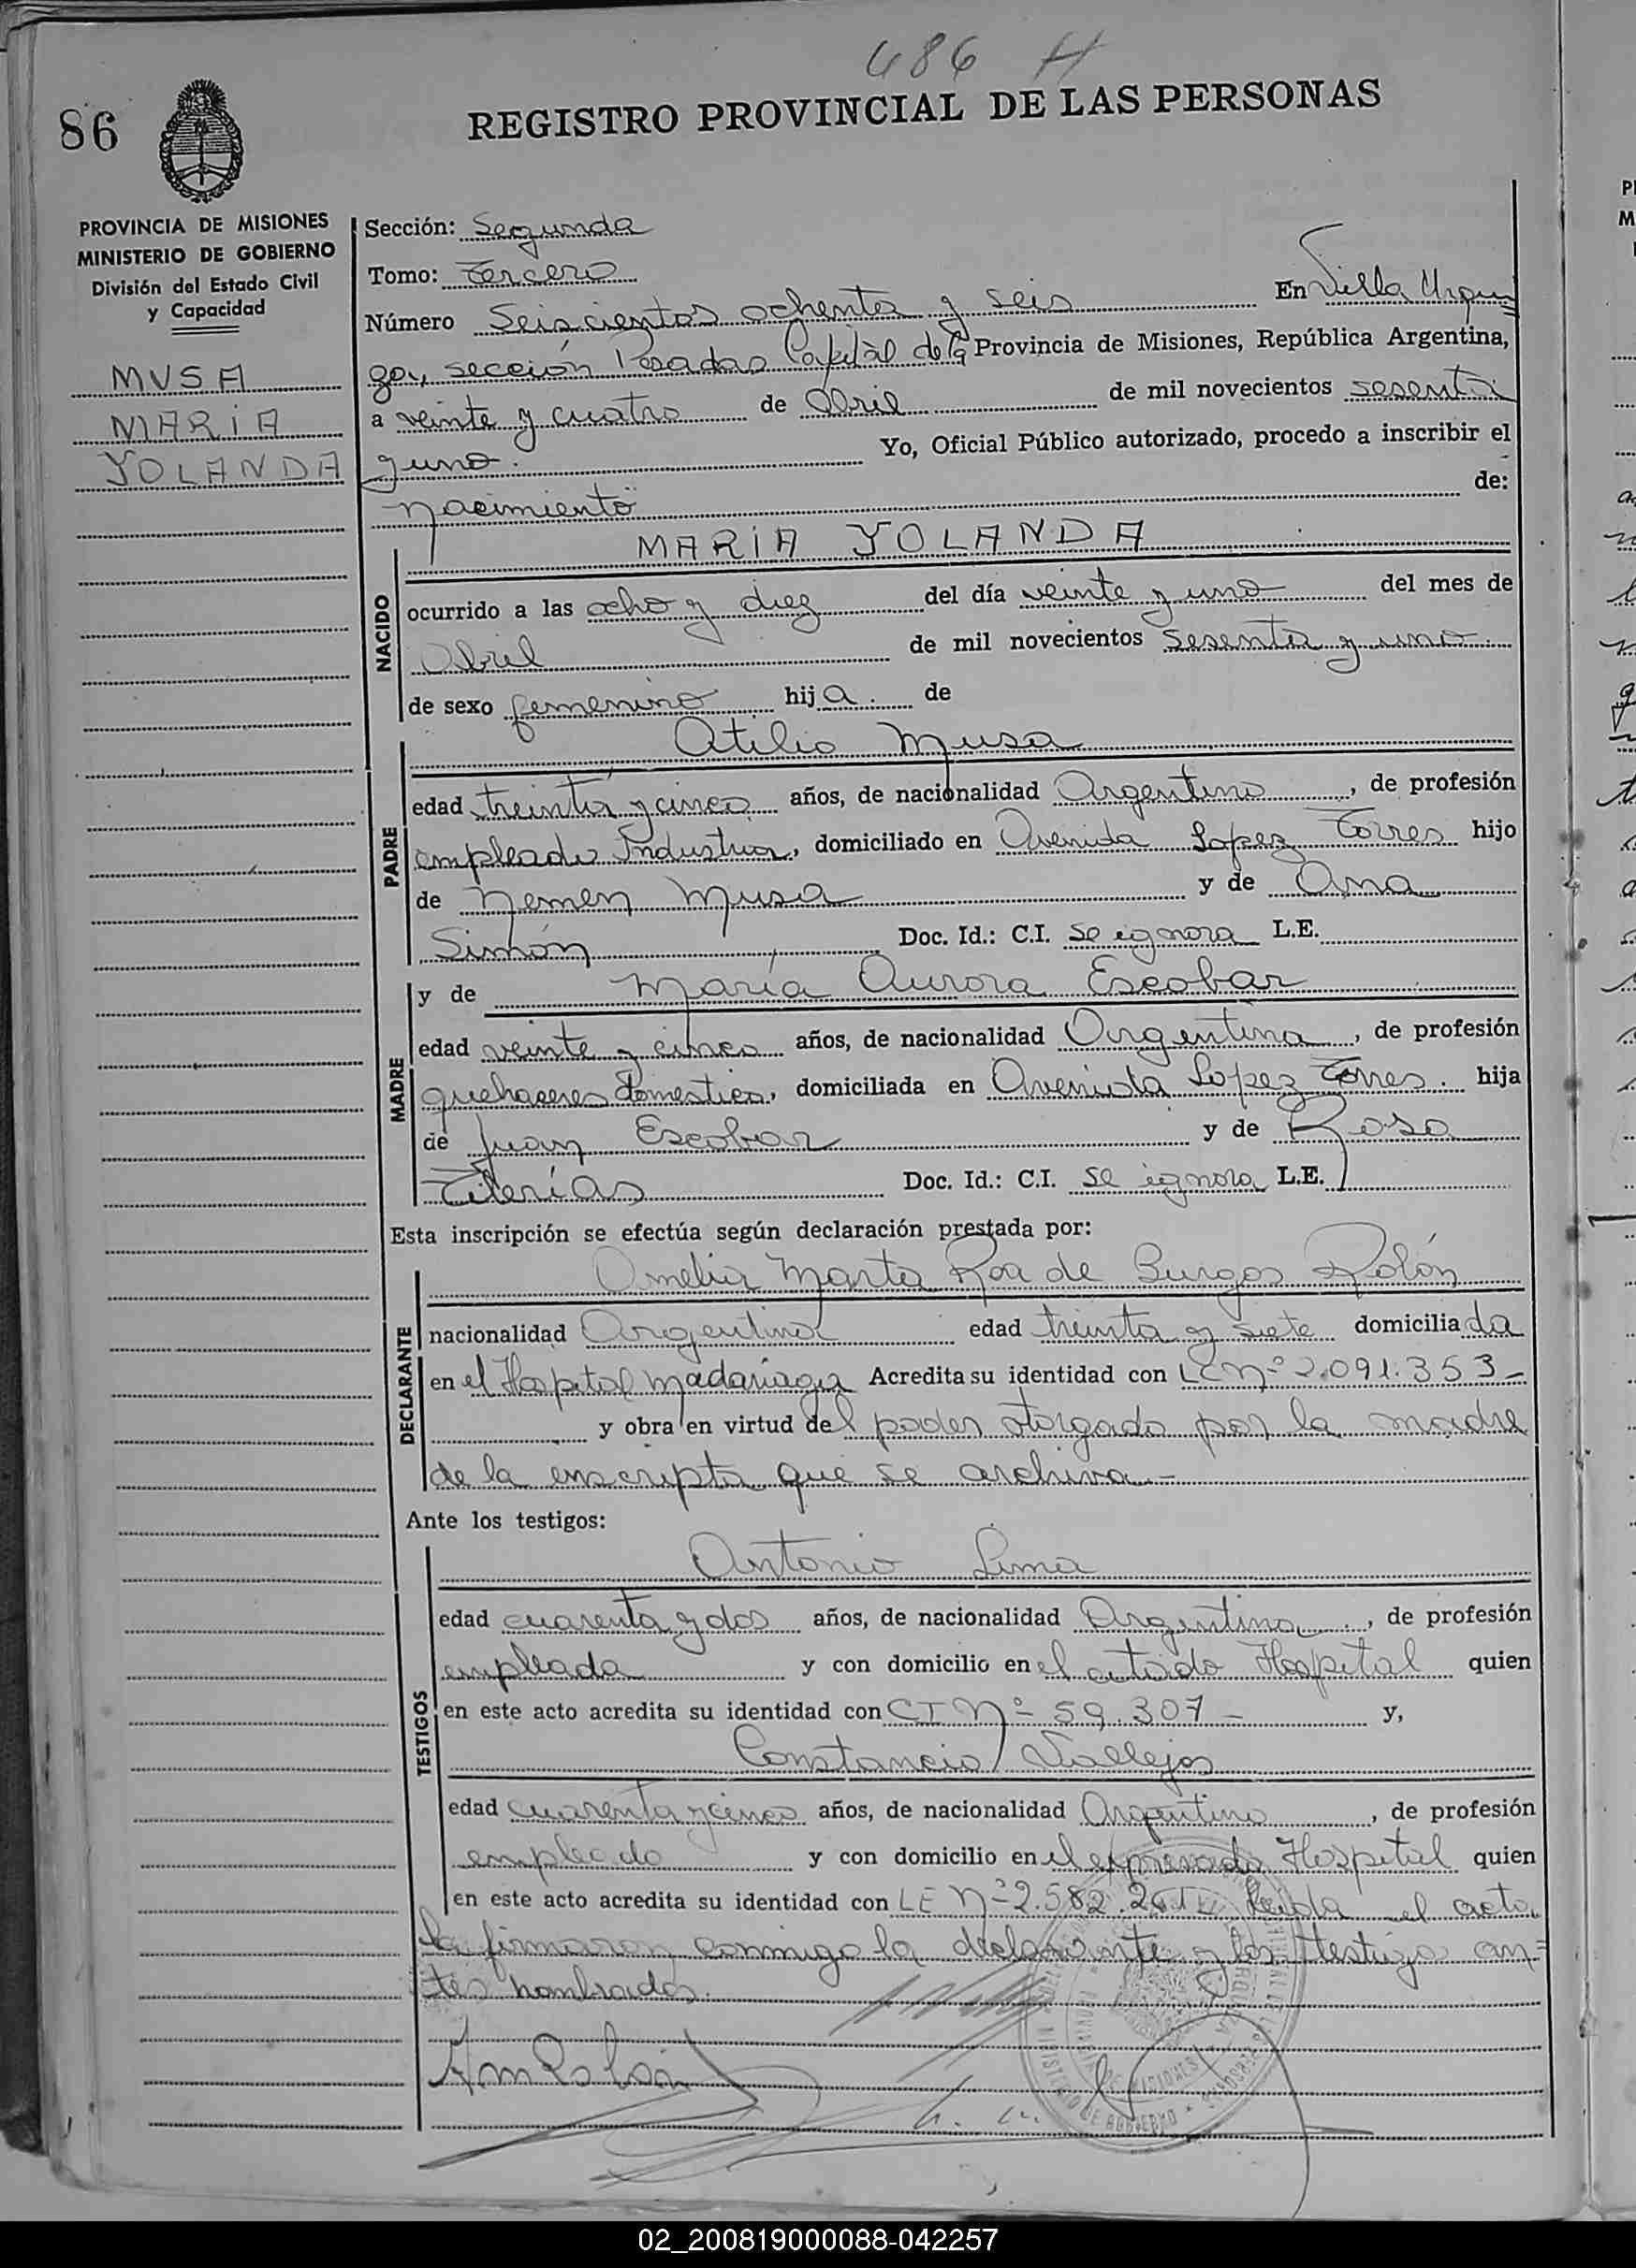 486 H
86
REGISTRO PROVINCIAL DE LAS PERSONAS
PROVINCIA DE MISIONES
MINISTERIO DE GOBIERNO
División del Estado Civil
y Capacidad
MUSA
MARIA
YOLANDA
Sección: Segunda
Tomo: Tercero
Número Seiscientos ochenta y seis En Villa Urqui
za, sección Posadas Capital de la Provincia de Misiones, República Argentina,
a veinte y cuatro de Abril de mil novecientos sesenta
y uno. Yo, Oficial Público autorizado, procedo a inscribir el
nacimiento de:
MARIA YOLANDA
NACIDO
ocurrido a las ocho y diez del día veinte y uno del mes de
Abril de mil novecientos sesenta y uno
de sexo femenino hija. de
Atilio Musa
PADRE
edad treinta y cinco años, de nacionalidad Argentino, de profesión
empleado Industria, domiciliado en Avenida Lopez Torres hijo
de Nemen Musa y de Ana
Simón Doc. Id.: C.I. se ignora L.E.
y de María Aurora Escobar
MADRE
edad veinte y cinco años, de nacionalidad Argentina, de profesión
quehaceres domestico, domiciliada en Avenida Lopez Torres. hija
de Juan Escobar y de Rosa
Doc. Id.: C.I. se ignora L.E.
Esta inscripción se efectúa según declaración prestada por:
Amelia Marta Roa de Burgos Rolón
DECLARANTE
nacionalidad Argentina edad treinta y siete domiciliada
en el Hospital Madariaga Acredita su identidad con LC Nº 2.091.353-
y obra en virtud del poder otorgado por la madre
de la enscripta que se archiva.-
Ante los testigos:
Antonio Lima
TESTIGOS
edad cuarenta y dos años, de nacionalidad Argentina, de profesión
empleada y con domicilio en el citado Hospital quien
en este acto acredita su identidad con CI Nº 59.307- y,
Constancio Vallejos
edad cuarenta y cinco años, de nacionalidad Argentino, de profesión
empleado y con domicilio en el expresado Hospital quien
en este acto acredita su identidad con LE Nº 2.582. Leida el acta
la firmaron conmigo la declarante y los testigos an=
tes nombrados.
02_200819000088-042257